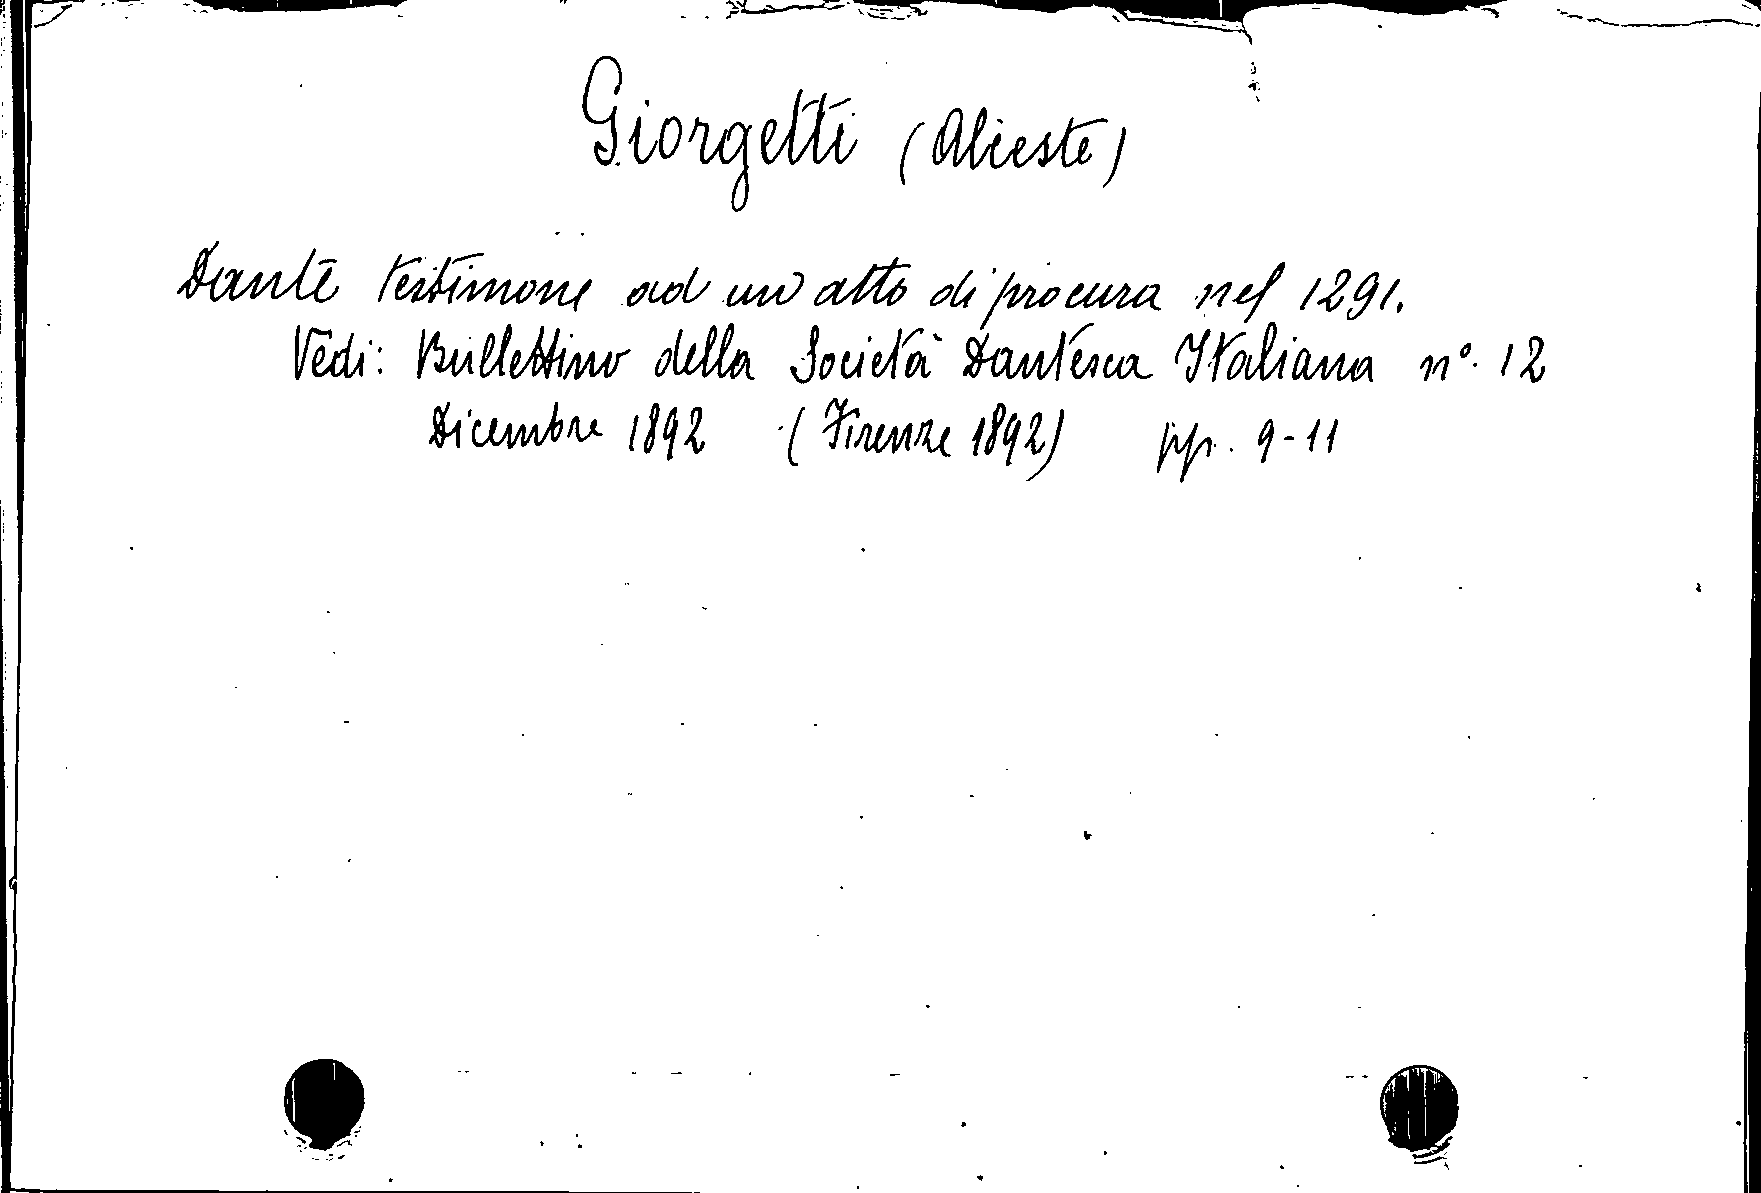 Giorgetti (Alceste)
Dante testimone ad un atto di procura nel 1291.
Vedi: Bullettino della Società Dantesca Italiana n°. 12
Dicembre 1892 (Firenze 1892) pp. 9-11